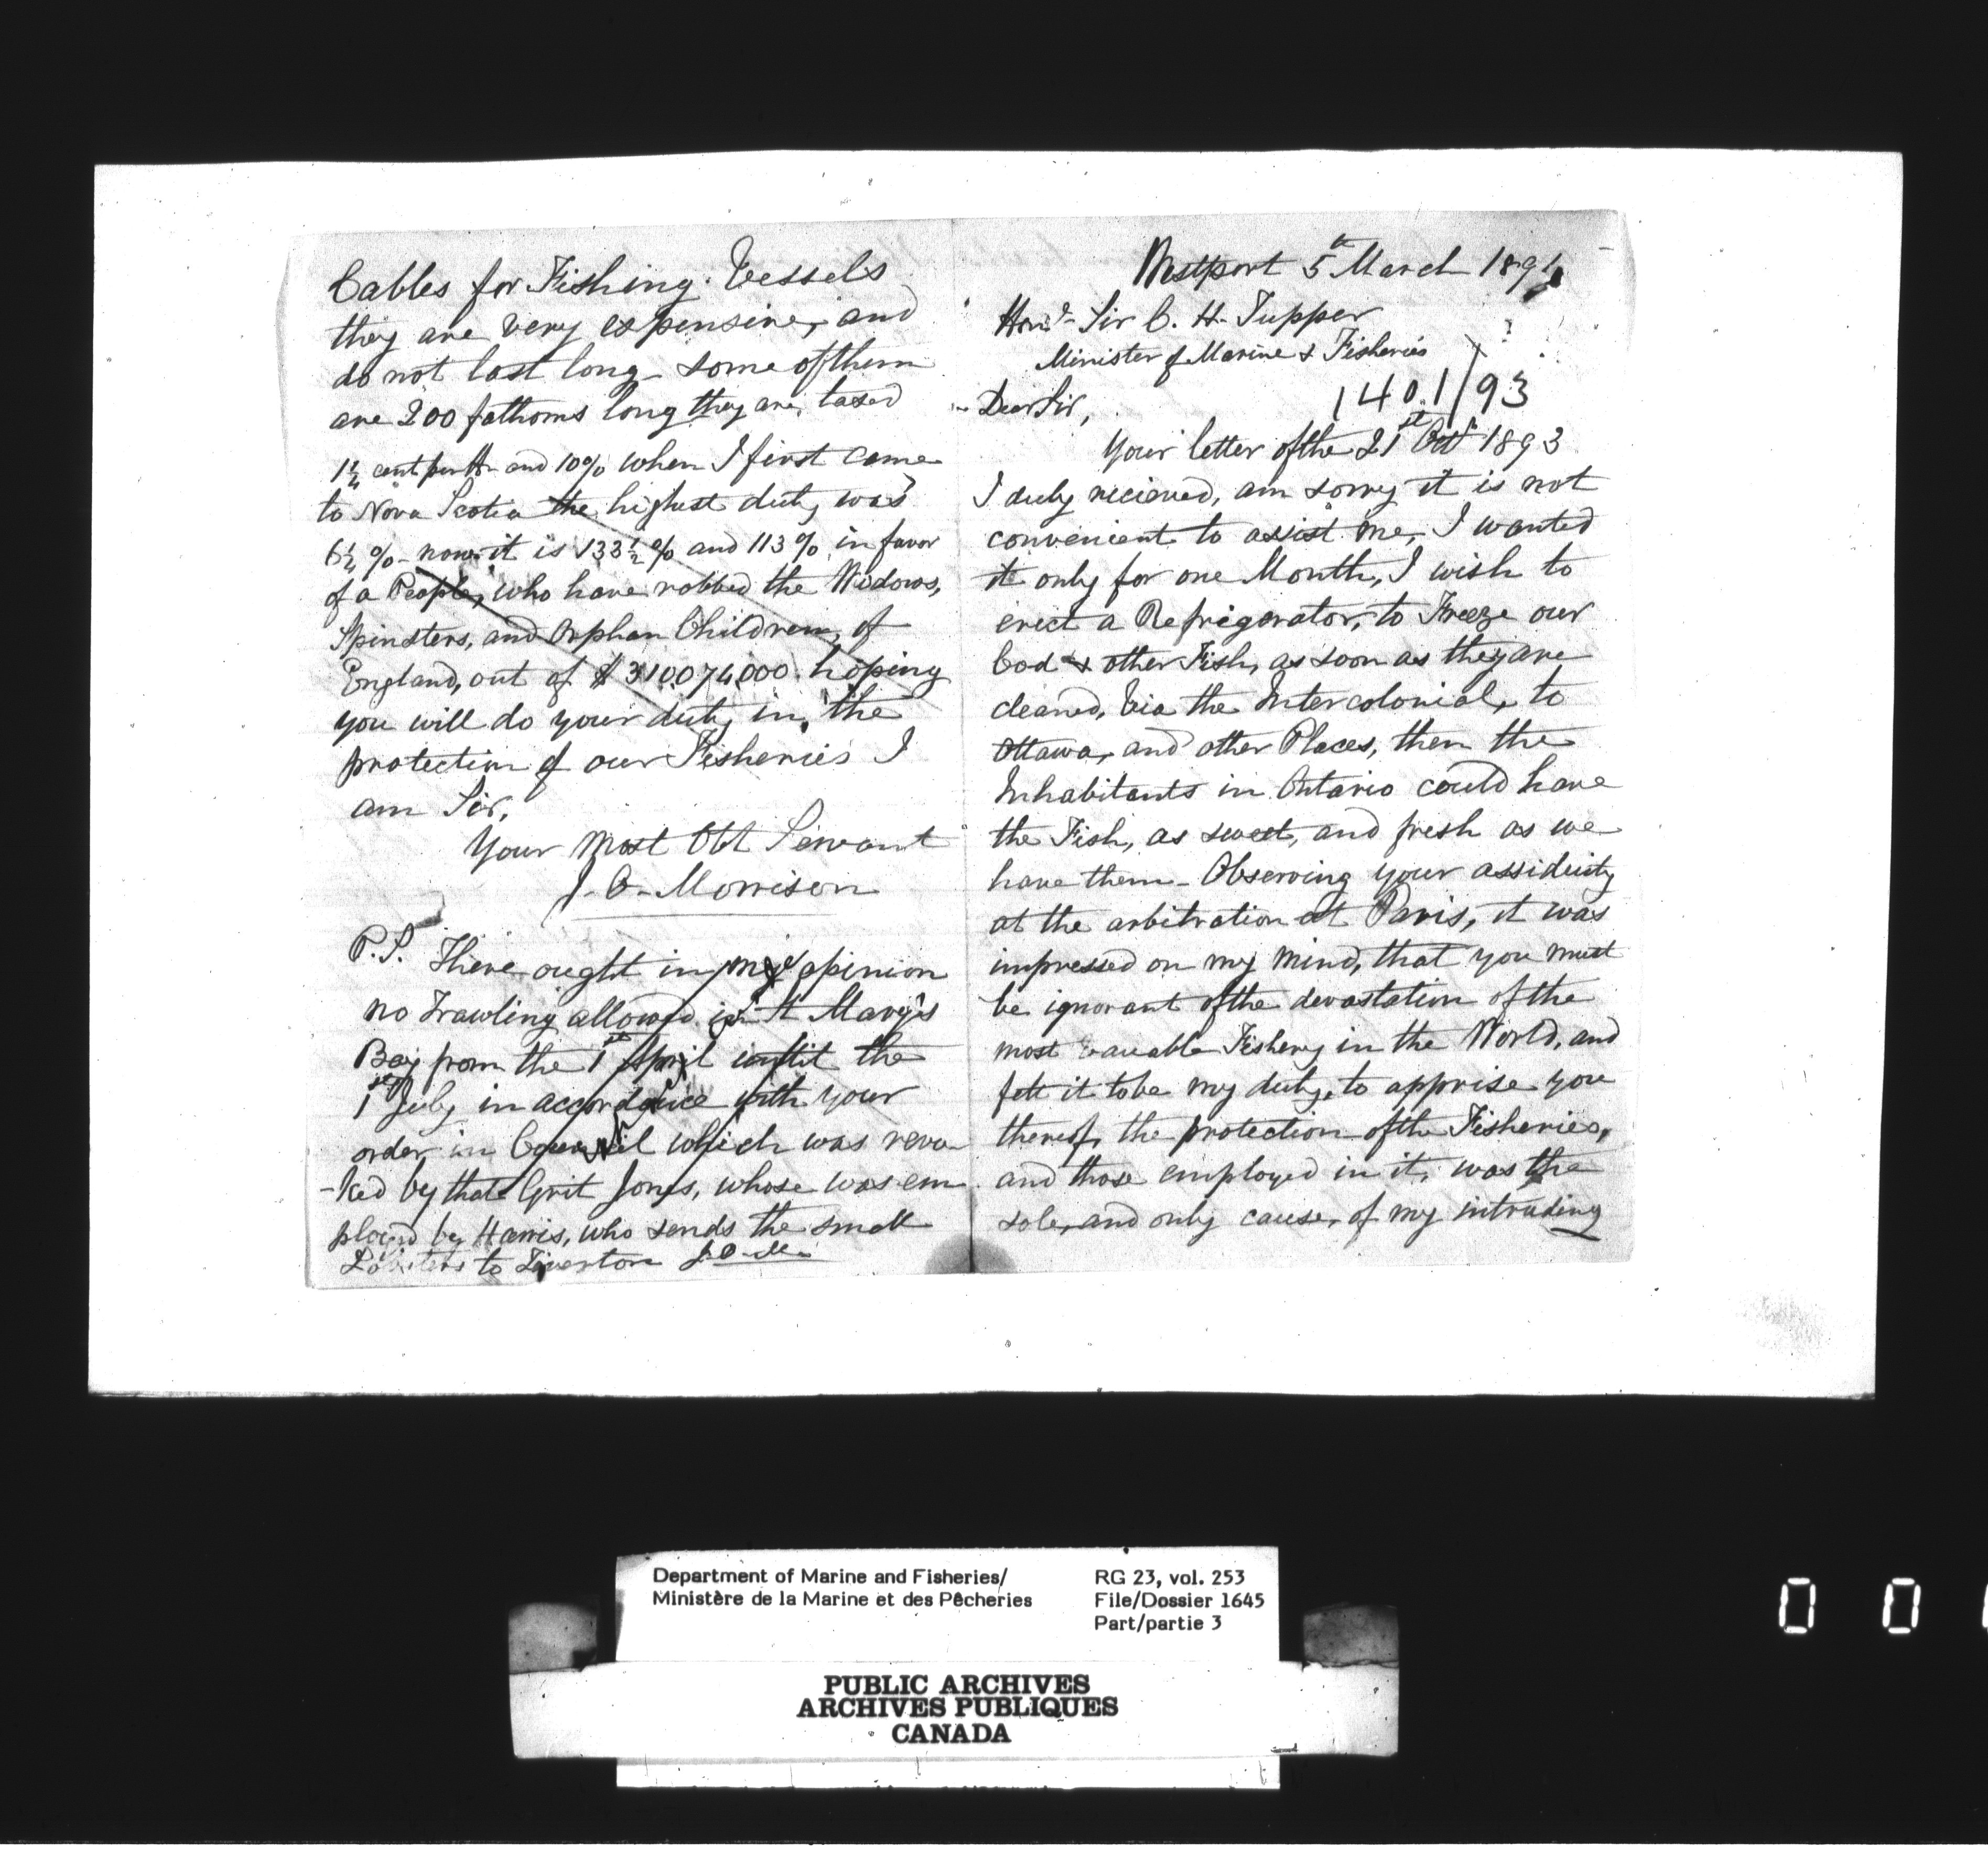 Cables for Fishing Vessels
they are very expensive, and
do not last long - some of them
are 200 fathoms long they are, taxed
1¼ cent per lb and 10% when I first came
to Nova Scotia the highest duty was
6¼ % - now it is 133½ % and 113 % in favor
of a People, who have robbed the Widows,
Spinsters, and Orphan Children, of
England, out of $ 310,074,000 hoping
you will do your duty in, the
protection of our Fisheries I
am Sir,
Your Most Obt Servant
J. O. Morrison
P.S. There ought in my opinion
no Trawling allowed in St Mary's
Bay from the 1st April until the
1st July in accordance with your
order in Council which was revo-
-ked by that Grit Jones, whose was em
ployed by Harris, who sends the small
Lobsters to Tiverton J.O.M.
Westport 5th March 1894
Honl. Sir C. H. Tupper
Minister of Marine & Fisheries
1401/93
Dear Sir,
Your letter of the 21st Oct 1893
I duly recieved, am sorry it is not
convenient to assist me, I wanted
it only for one Month, I wish to
erect a Refrigerator, to Freeze our
Cod & other Fish, as soon as they are
cleaned, Via the Intercolonial, to
Ottawa, and other Places, then the
Inhabitants in Ontario could have
the Fish, as sweet, and fresh as we
have them - Observing your assiduity
at the arbitration at Paris, it was
impressed on my mind, that you must
be ignorant of the devastation of the
most Valuable Fishery in the World, and
felt it to be my duty, to apprise you
thereof, the protection of the Fisheries,
and those employed in it, was the
sole, and only cause, of my intruding
Department of Marine and Fisheries/
Ministère de la Marine et des Pêcheries
RG 23, vol. 253
File/Dossier 1645
Part/partie 3
PUBLIC ARCHIVES
ARCHIVES PUBLIQUES
CANADA
0 0